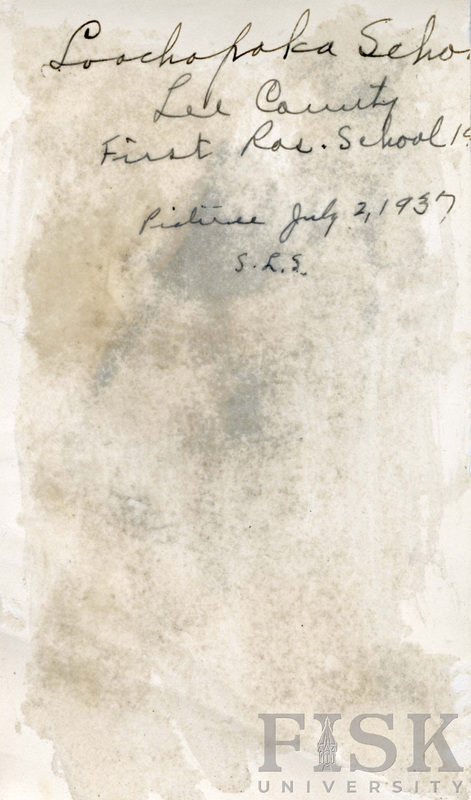 Loochapoka Scho
Lee County
First Ros. School 19
Picture July 2, 1937
S.L.S.
FISK
UNIVERSITY